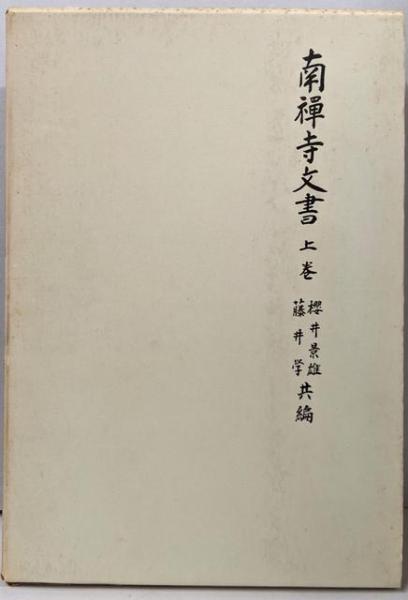 南禪寺文書 上巻
櫻井景雄
藤井学
共編